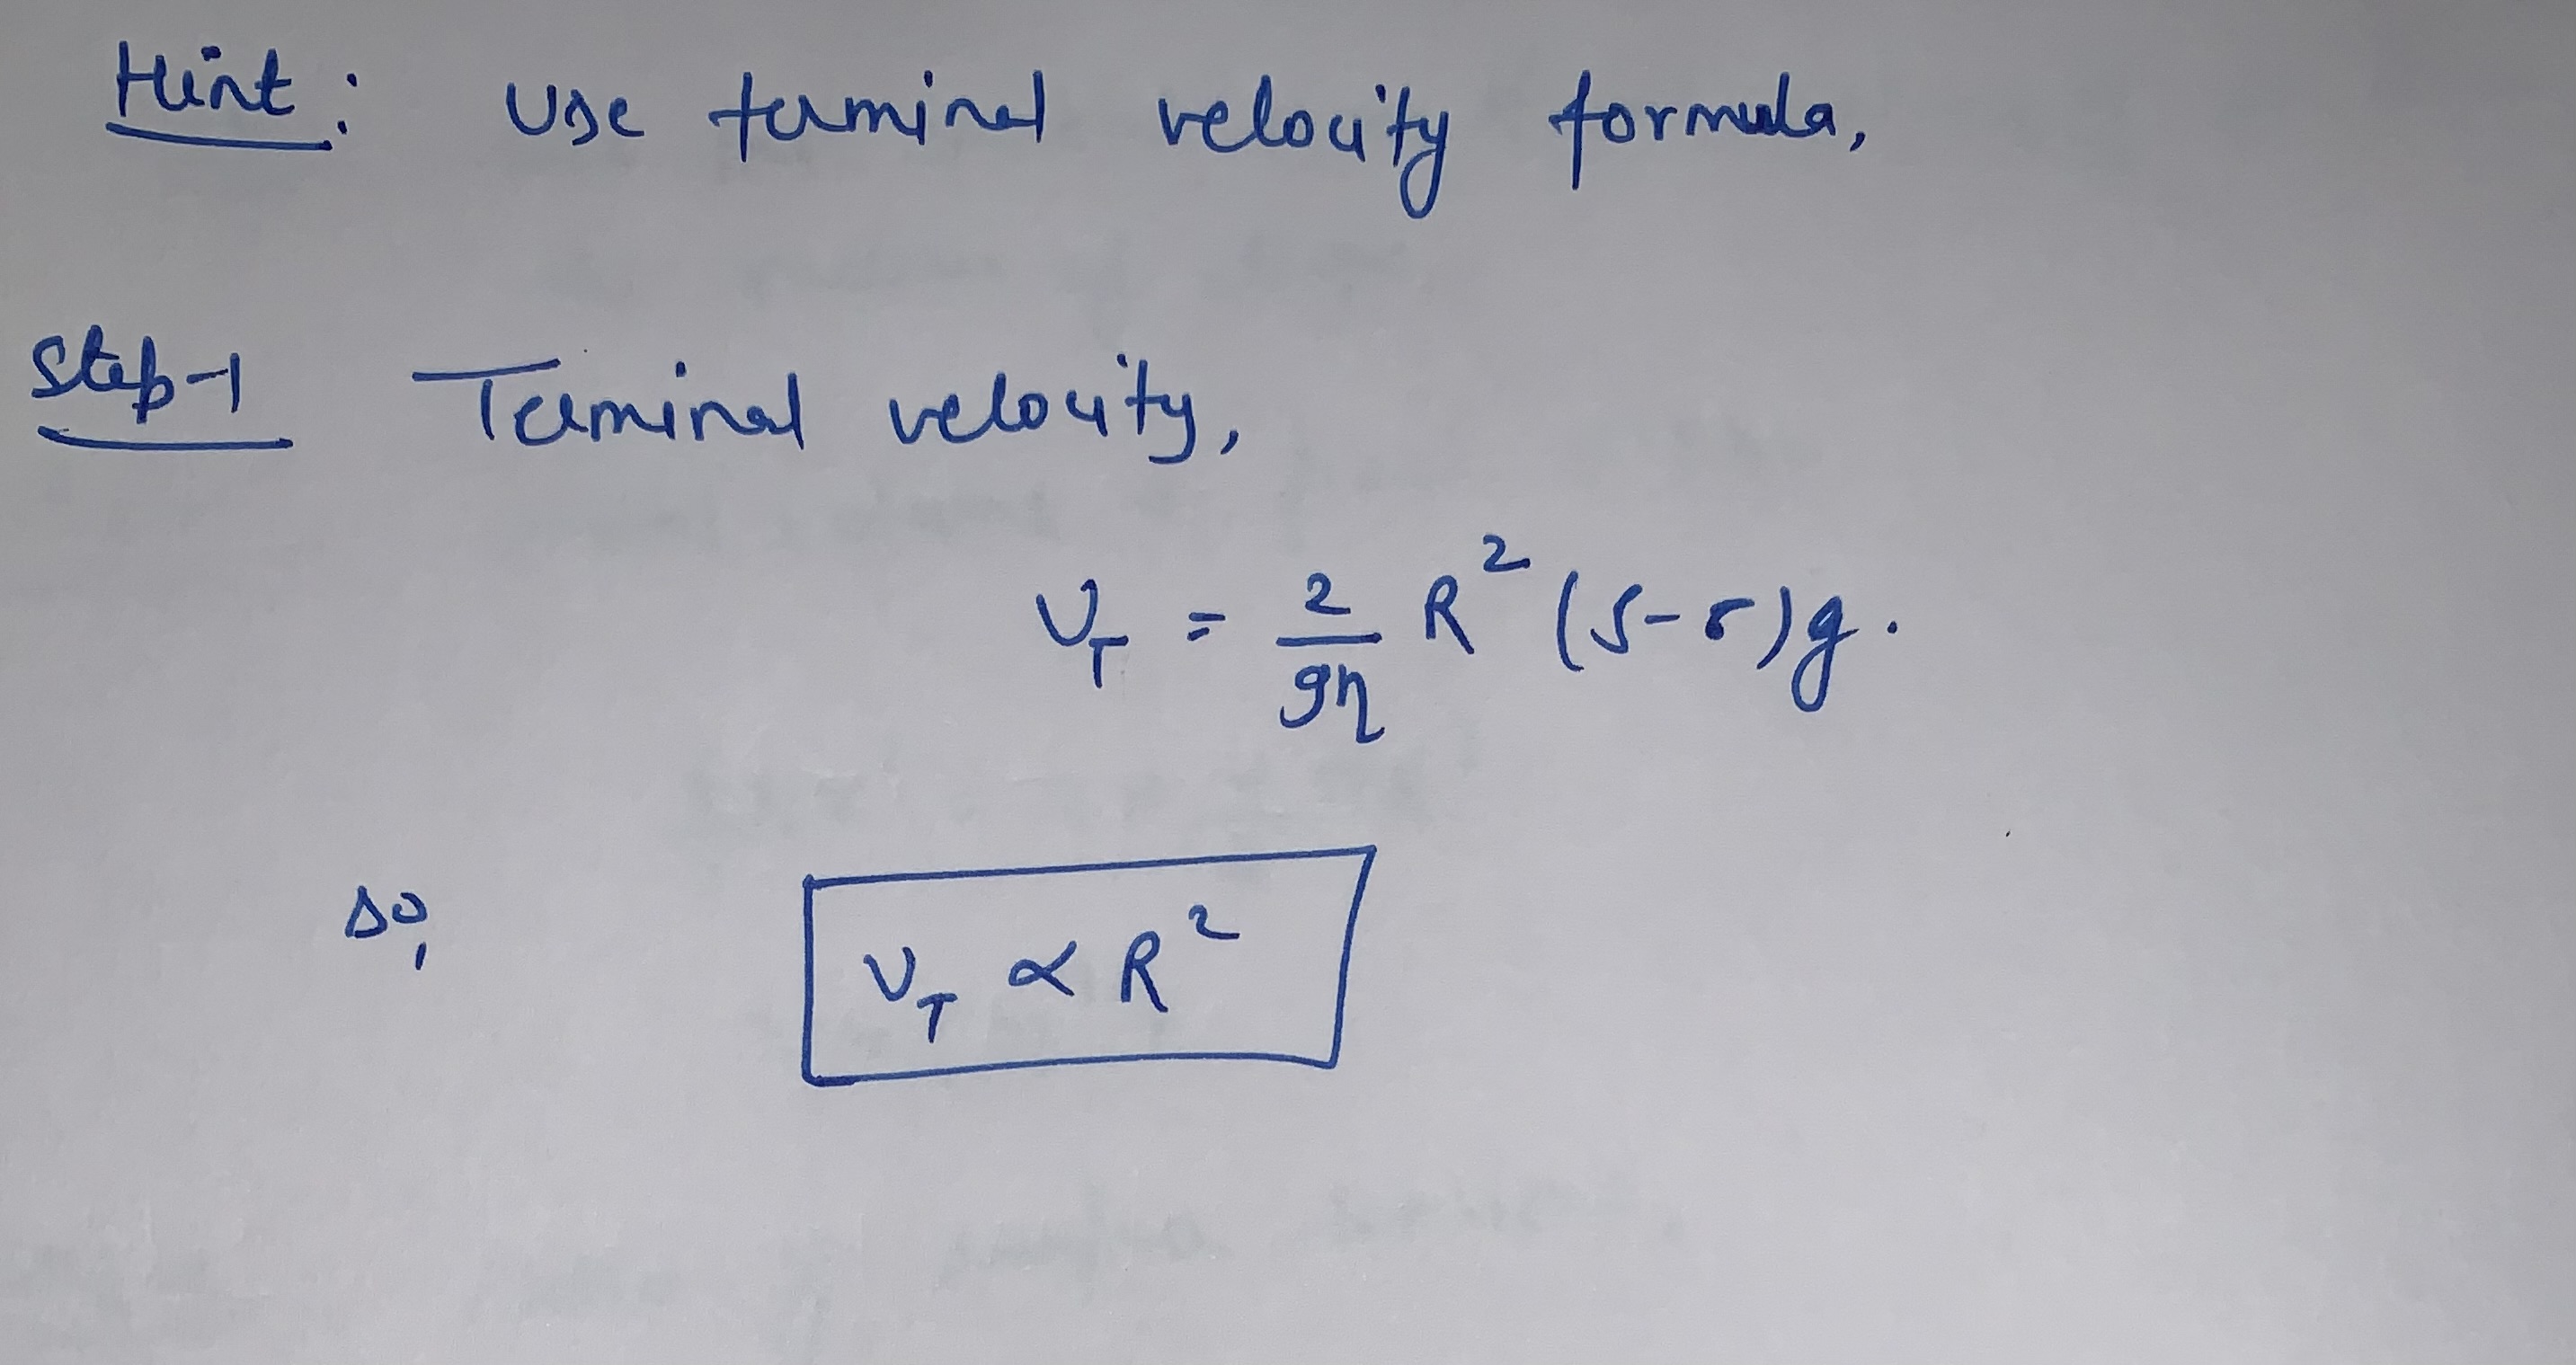 Hint: Use terminal velocity formula,
Step-1 Terminal velocity,
V_T = 2/9η R² (ρ-σ)g.
so, V_T ∝ R²